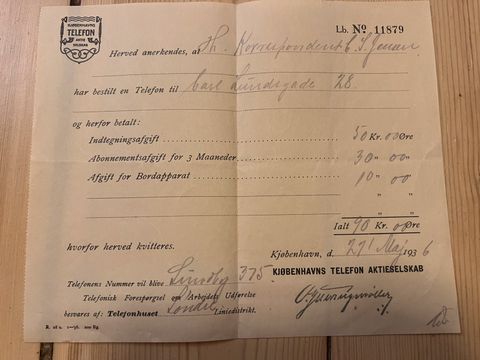 KJØBENHAVNS
TELEFON
AKTIE
SELSKAB
Lb. № 11879
Herved anerkendes, at Hr. Korrespondent C. S. Jensen
har bestilt en Telefon til Carl Lundsgade 28.
og herfor betalt:
Indtegningsafgift 50 Kr. 00 Øre
Abonnementsafgift for 3 Maaneder 30 " 00 "
Afgift for Bordapparat 10 " 00 "
" "
Ialt 90 Kr. 00 Øre
hvorfor herved kvitteres.
Kjøbenhavn, d. 27/ Maj 1936
KJØBENHAVNS TELEFON AKTIESELSKAB
Telefonens Nummer vil blive Sundby 375
Telefonisk Forespørgsel om Arbejdets Udførelse
besvares af: Telefonhuset Søndre Liniedistrikt.